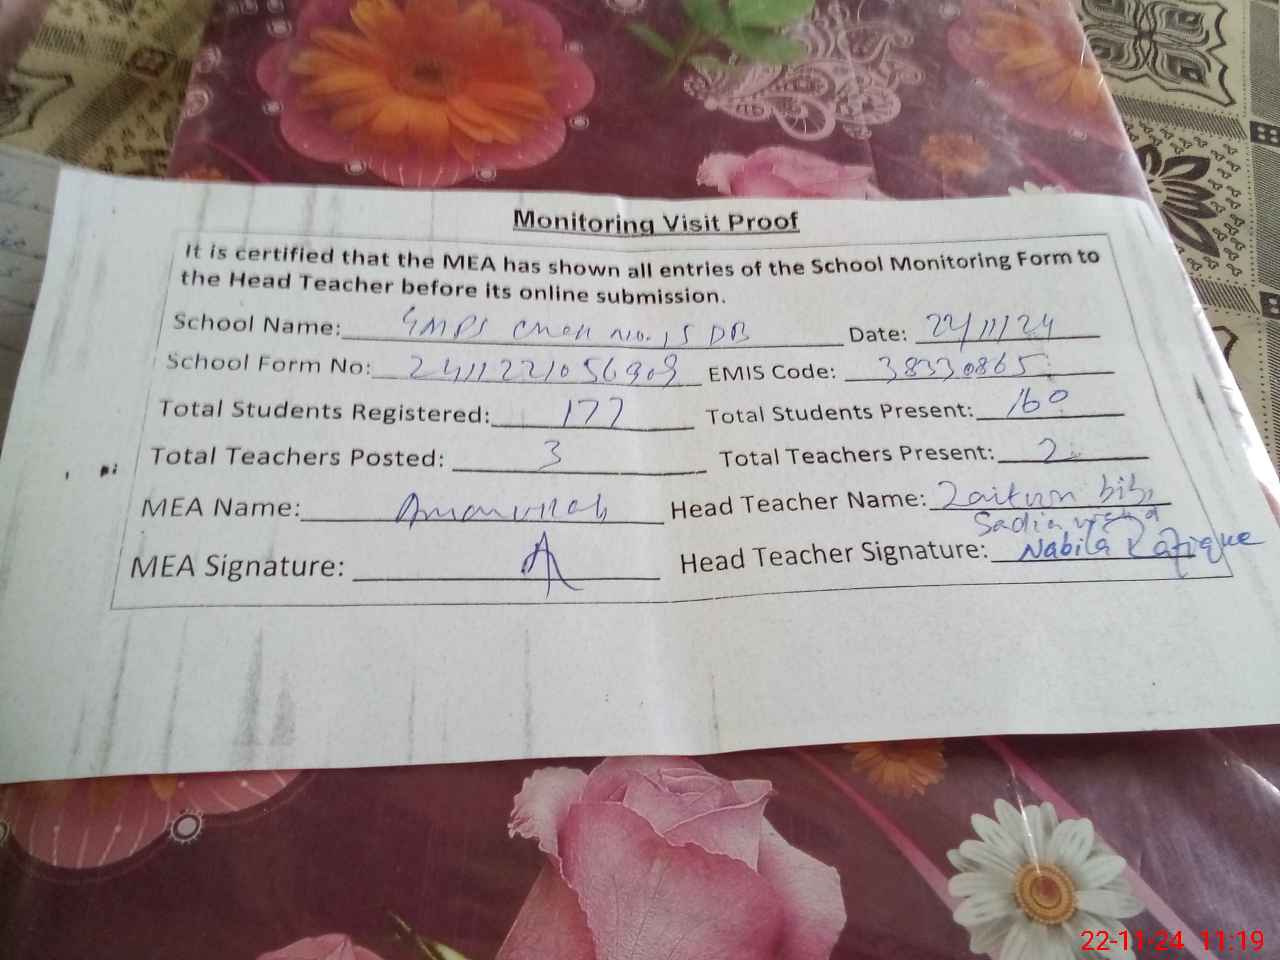 Monitoring Visit Proof
It is certified that the MEA has shown all entries of the School Monitoring Form to
the Head Teacher before its online submission.
School Name: GMPS Chak No. 15 DB Date: 22/11/24
School Form No: 2411221056909 EMIS Code: 38330865
Total Students Registered: 177 Total Students Present: 160
Total Teachers Posted: 3 Total Teachers Present: 2
MEA Name: Amanullah Head Teacher Name: Zaitun bibi
Sadia
MEA Signature: Head Teacher Signature: Nabila Rafique
22-11-24 11:19